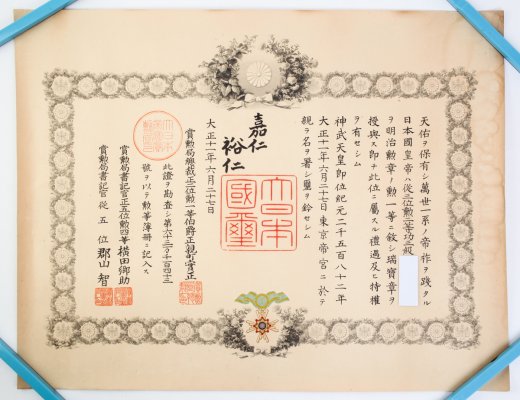 天佑ヲ保有シ萬世一系ノ帝祚ヲ踐タル
日本國皇帝ハ從三位勲二等功三級
ヲ明治勲章ノ勲一等ニ敘シ瑞寶章ヲ
授與ス即チ此位ニ屬スル禮遇及ヒ特權
ヲ有セシム
神武天皇即位紀元二千五百八十二年
大正十一年六月二十七日東京帝宮ニ於テ
親ラ名ヲ署シ璽ヲ鈐セシム
嘉仁
裕仁
大日本
國璽
大正十一年六月二十七日
賞勲局總裁正二位勲一等伯爵正親町實正
此證ヲ勘査シ第六十三万千四百四十三
號ヲ以テ勲等簿冊ニ記入ス
賞勲局書記官正五位勲四等横田郷助
賞勲局書記官從五位郡山智